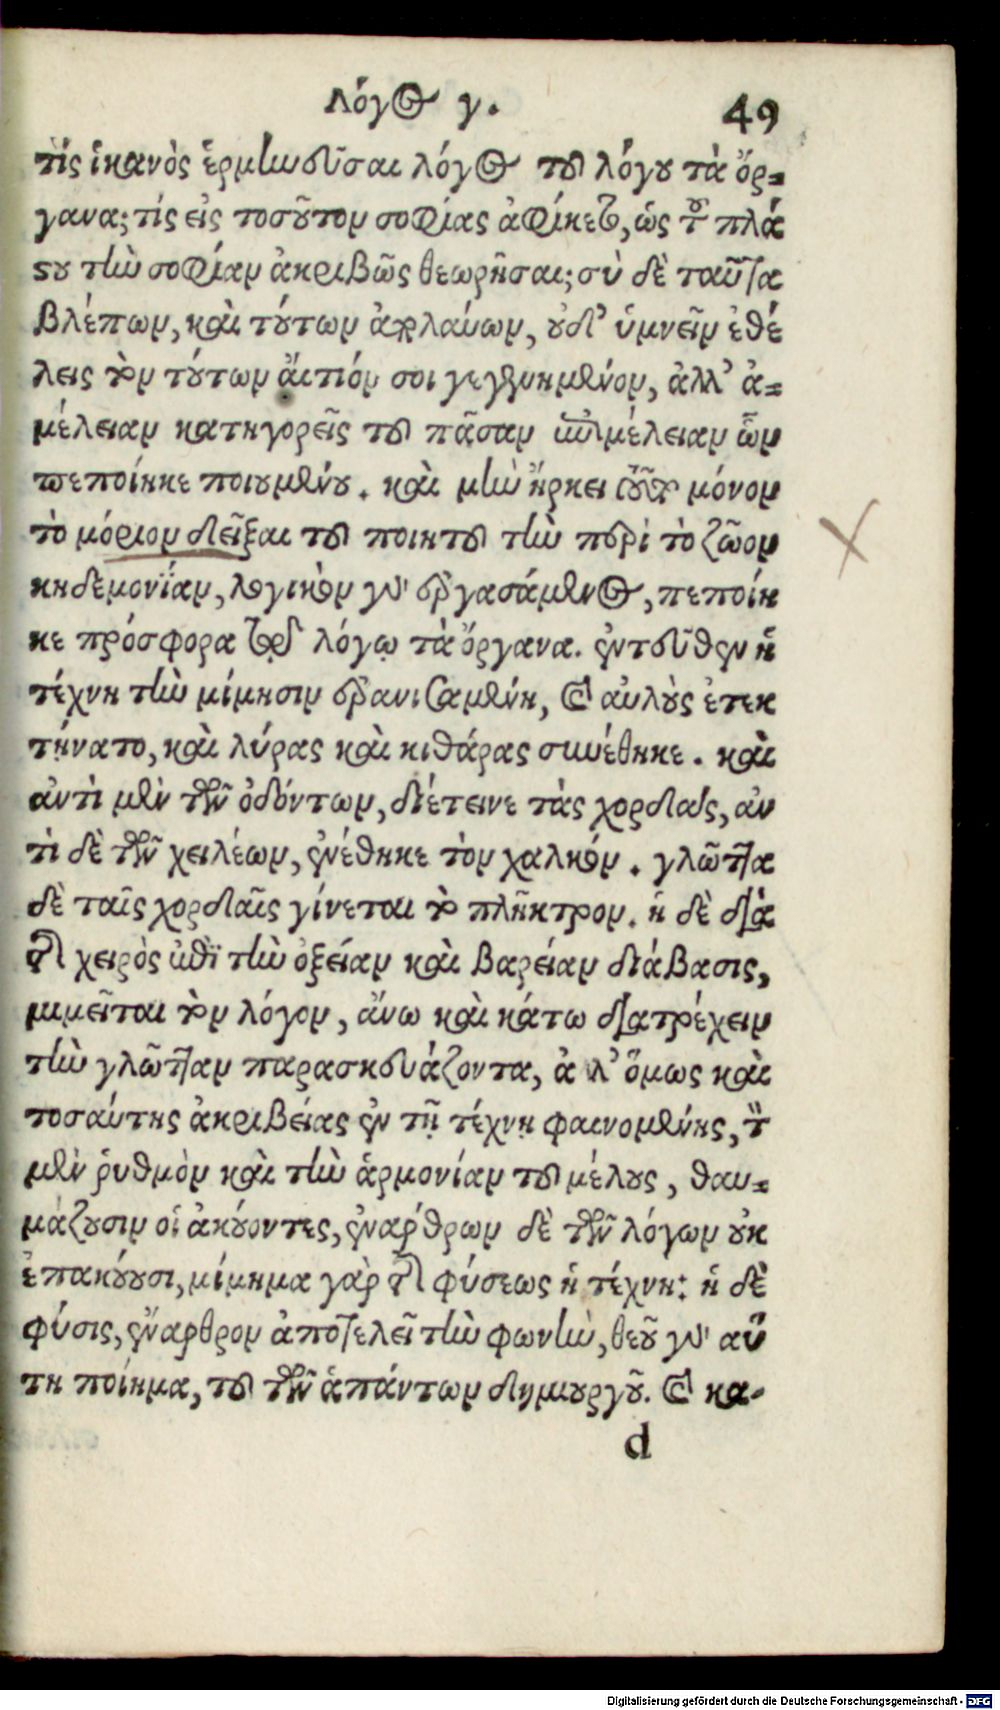 Λόγος γ. 49
τίς ἱκανὸς ἑρμηνεῦσαι λόγος τοῦ λόγου τὰ ὄρ-
γανα; τίς εἰς τοσοῦτον σοφίας ἀφίκετο, ὡς τοῦ πλά
στου τὴν σοφίαν ἀκριβῶς θεωρῆσαι; σὺ δὲ ταῦτα
βλέπων, καὶ τούτων ἀπολαύων, οὐδ' ὑμνεῖν ἐθέ
λεις τὸν τούτων ἄιτιόν σοι γεγενημένον, ἀλλ' ἀ-
μέλειαν κατηγορεῖς τοῦ πᾶσαν ἐπιμέλειαν ὧν
πεποίηκε ποιουμένου. καὶ μὴν ἤρκει τοῦτο μόνον
τὸ μόριον δεῖξαι τοῦ ποιητοῦ τὴν περὶ τὸ ζῶον
κηδεμονίαν, λογικὸν γὰρ ἐργασάμενος, πεποίη
κε πρόσφορα τῷ λόγῳ τὰ ὄργανα. ἐντεῦθεν ἡ
τέχνη τὴν μίμησιν ἐρανισαμένη, καὶ αὐλοὺς ἐτεκ
τήνατο, καὶ λύρας καὶ κιθάρας συνέθηκε. καὶ
ἀντὶ μὲν τῶν ὀδόντων, διέτεινε τὰς χορδὰς, ἀν
τὶ δὲ τῶν χειλέων, ἐνέθηκε τὸν χαλκόν. γλῶττα
δὲ ταῖς χορδαῖς γίνεται τὸ πλῆκτρον. ἡ δὲ διὰ
τῆς χειρὸς ἐπὶ τὴν ὀξείαν καὶ βαρείαν διάβασις,
μιμεῖται τὸν λόγον, ἄνω καὶ κάτω διατρέχειν
τὴν γλῶτταν παρασκευάζοντα, ἀλλ' ὅμως καὶ
τοσαύτης ἀκριβείας ἐν τῇ τέχνῃ φαινομένης, τὸν
μὲν ῥυθμὸν καὶ τὴν ἁρμονίαν τοῦ μέλους, θαυ-
μάζουσιν οἱ ἀκούοντες, ἐνάρθρων δὲ τῶν λόγων οὐκ
ἐπακούουσι, μίμημα γὰρ τῆς φύσεως ἡ τέχνη: ἡ δὲ
φύσις, ἔναρθρον ἀποτελεῖ τὴν φωνὴν, θεοῦ γὰρ αὕ
τη ποίημα, τοῦ τῶν ἁπάντων δημιουργοῦ. καὶ κα-
d
Digitalisierung gefördert durch die Deutsche Forschungsgemeinschaft - DFG